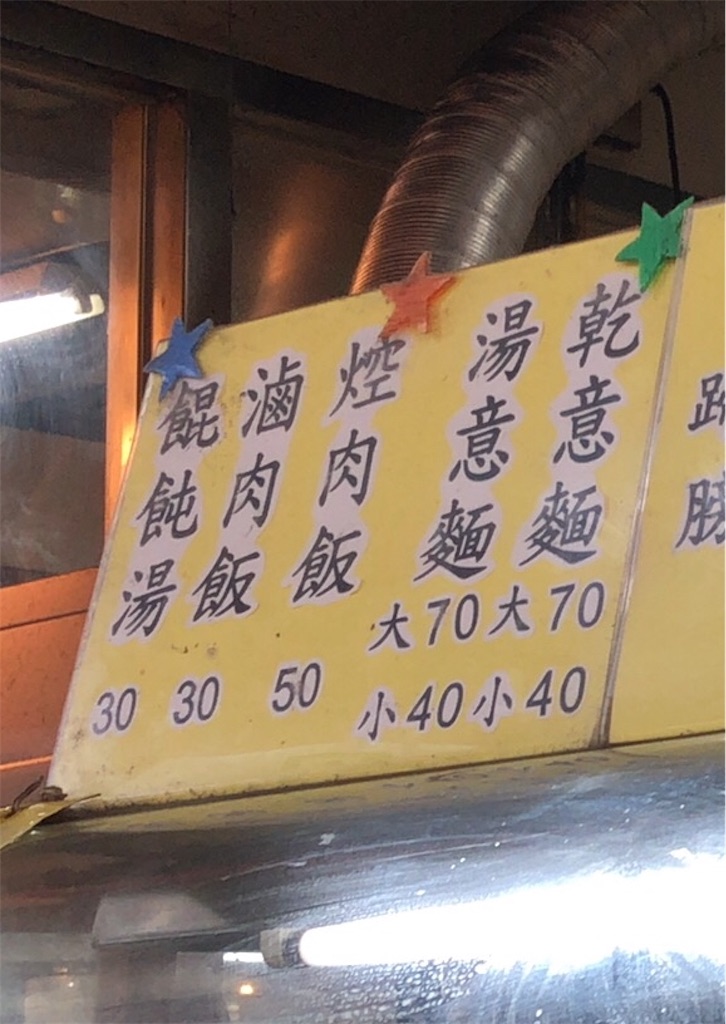 乾意麵
大70
小40
湯意麵
大70
小40
焢肉飯
50
滷肉飯
30
餛飩湯
30